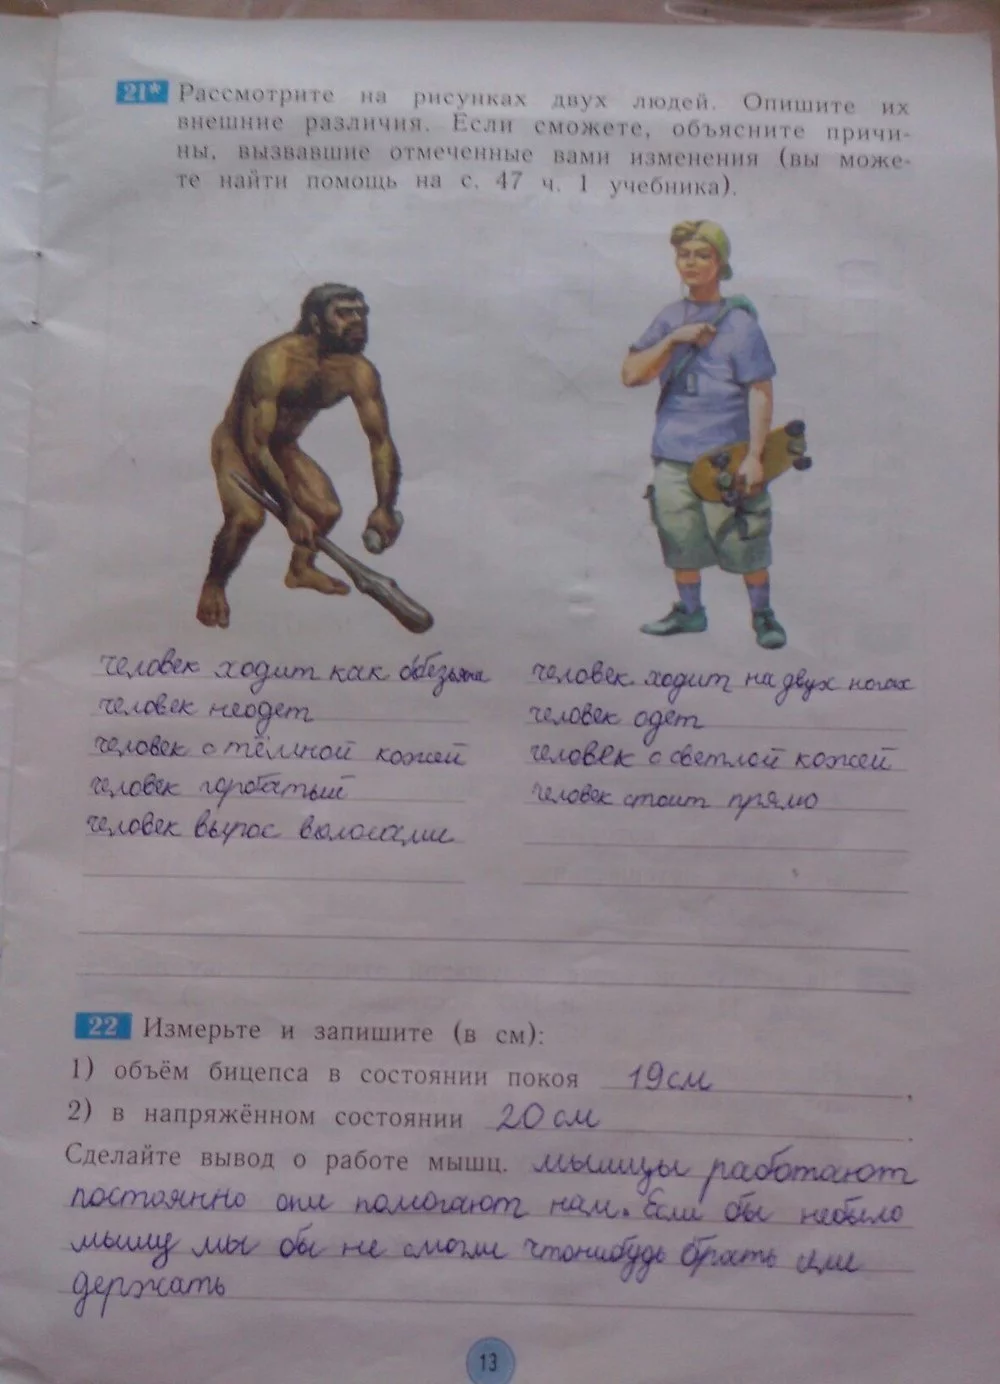 21* Рассмотрите на рисунках двух людей. Опишите их
внешние различия. Если сможете, объясните причи-
ны, вызвавшие отмеченные вами изменения (вы може-
те найти помощь на с. 47 ч. 1 учебника).
человек ходит как обезьяна
человек неодет
человек с тёмной кожей
человек горбатый
человек вырос волосами
человек ходит на двух ногах
человек одет
человек с светлой кожей
человек стоит прямо
22 Измерьте и запишите (в см):
1) объём бицепса в состоянии покоя 19 см.
2) в напряжённом состоянии 20 см.
Сделайте вывод о работе мышц. мышцы работают
постоянно они помогают нам. Если бы небыло
мышц мы бы не смогли чтонибудь брать или
держать
13